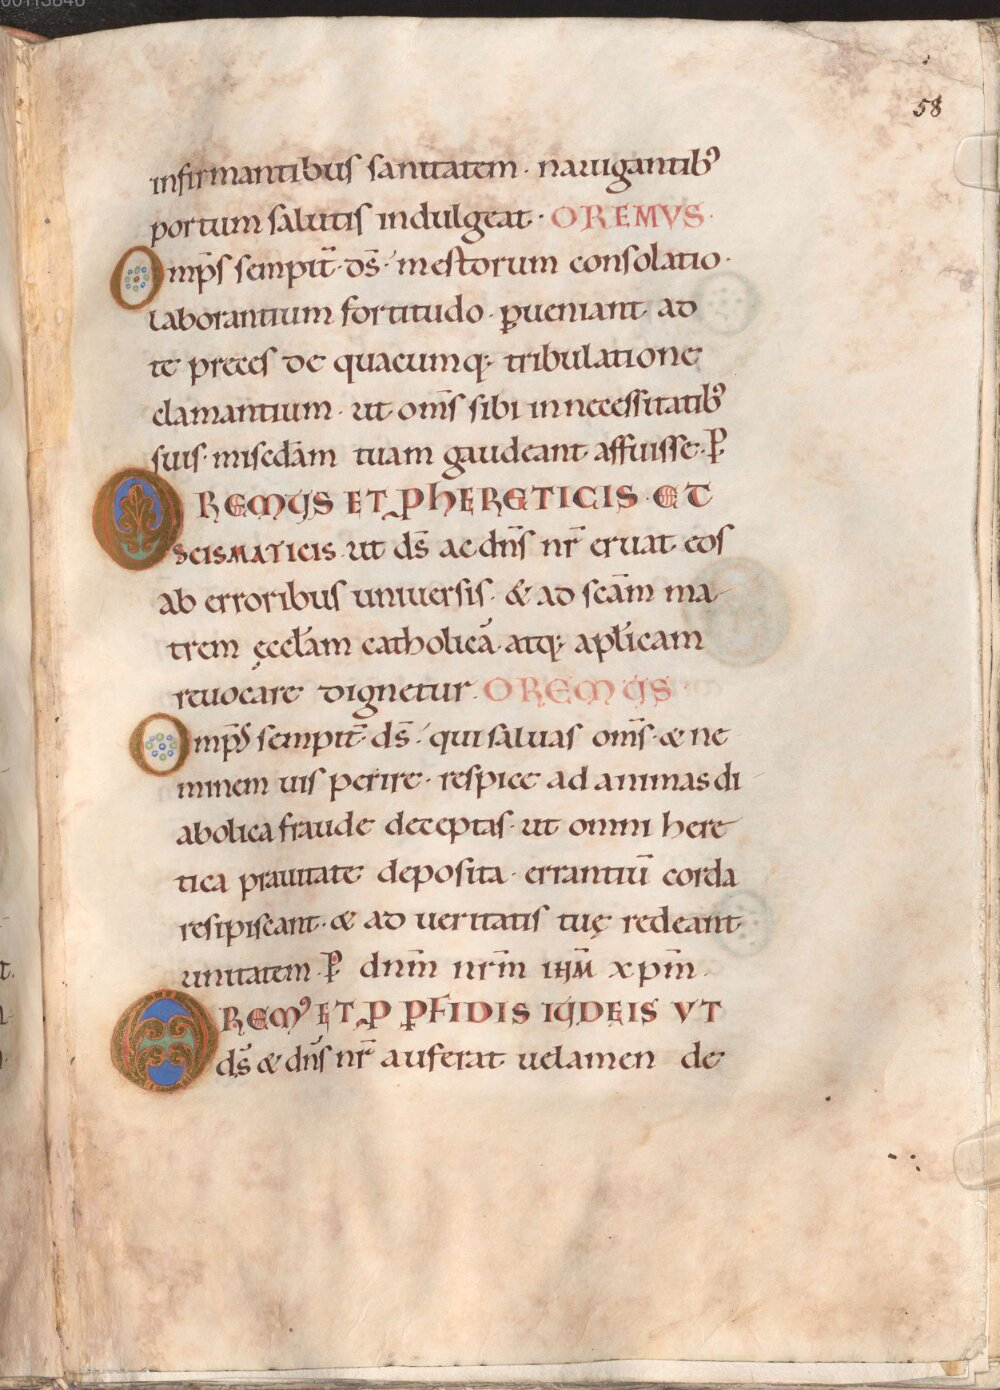 58
infirmantibus sanitatem · nauigantibꝰ
portum salutis indulgeat · OREMVS ·
Omp̄s sempit̄ · ds̄ · mestorum consolatio ·
laborantium fortitudo · ꝑueniant ad
te preces de quacumq; tribulatione
clamantium · ut om̄s sibi in necessitatibꝰ
suis · misedām tuam gaudeant affuisse · P̄
OREMUS ET P HERETICIS · ET
SCISMATICIS · ut ds̄ ac dn̄s nr̄ eruat eos
ab erroribus uniuersis · & ad scām ma
trem ęccl̄am catholicā · atq; apl̄icam
reuocare dignetur · OREMUS ·
Omp̄s sempit̄ · ds̄ · qui saluas om̄s · & ne
minem uis perire · respice ad animas di
abolica fraude deceptas · ut omni here
tica prauitate deposita · errantiū corda
resipiscant · & ad ueritatis tuę redeant
unitatem · P̄ dnm̄ nrm̄ ihm̄ xpm̄ ·
OREMꝰ ET P PFIDIS IUDEIS VT
ds̄ & dn̄s nr̄ auferat uelamen de